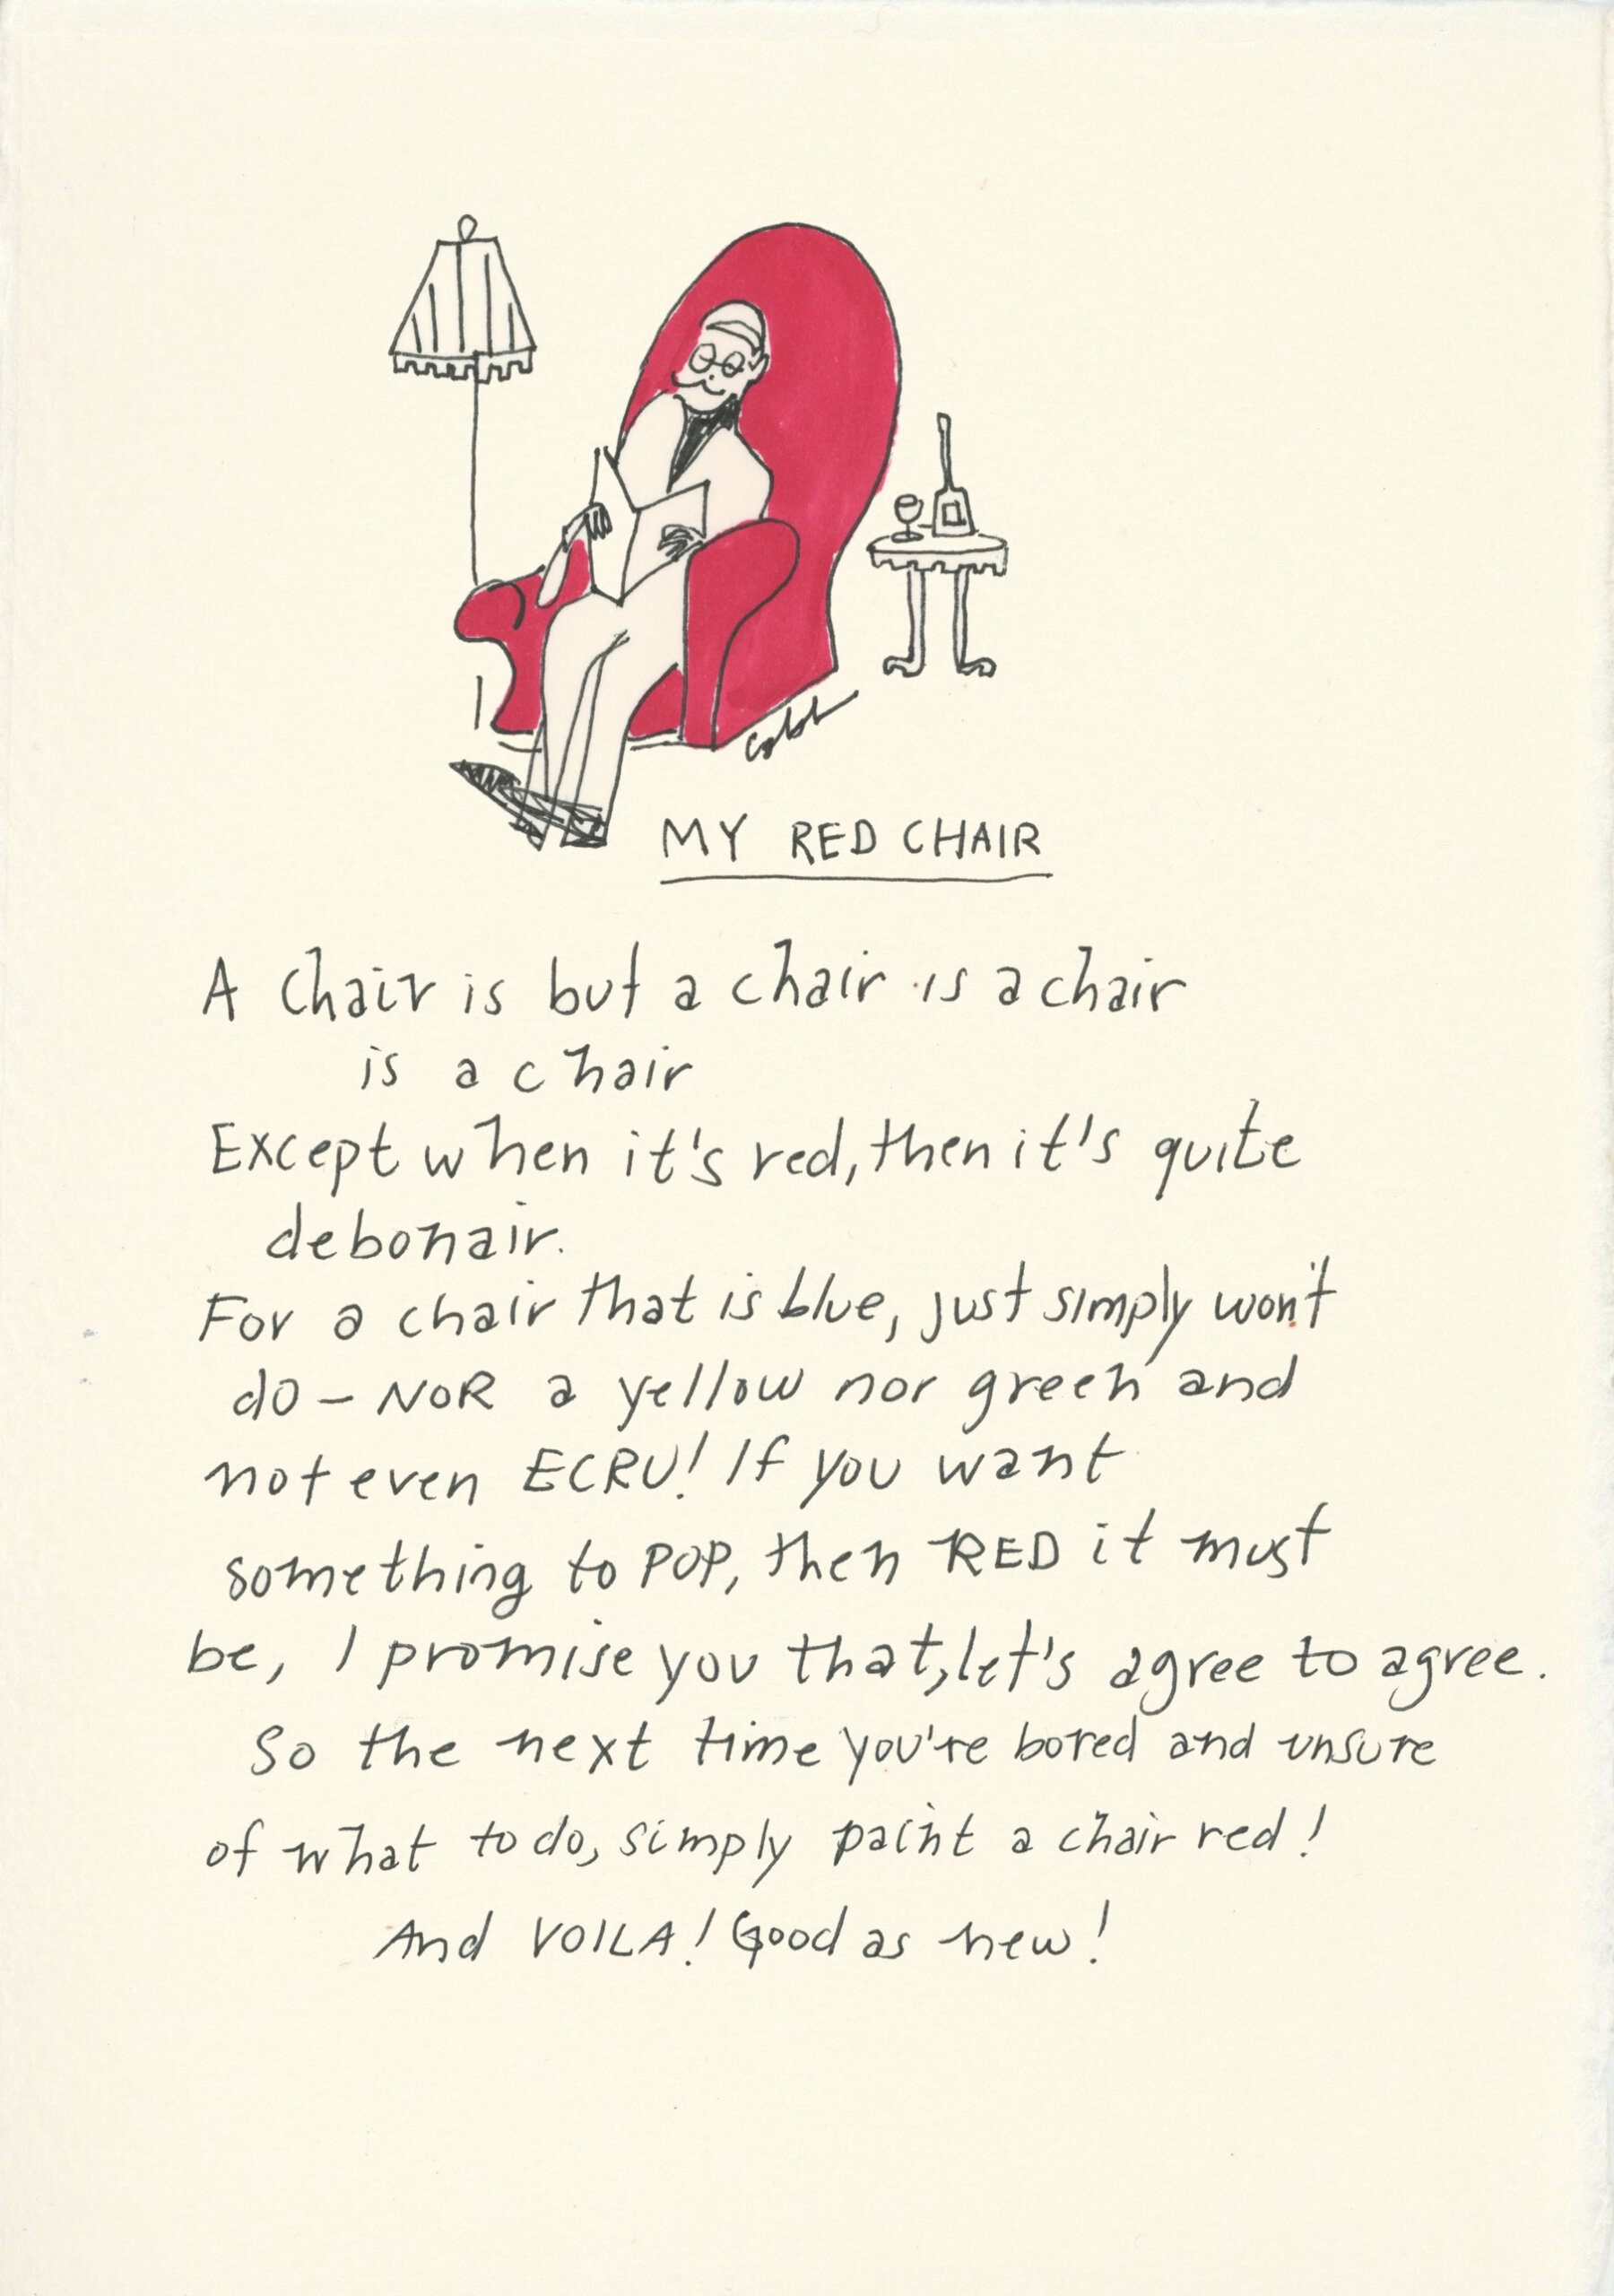 Cobb
MY RED CHAIR
A Chair is but a chair is a chair
is a chair
Except when it's red, then it's quite
debonair.
For a chair that is blue, just simply won't
do – NOR a yellow nor green and
not even ECRU! If you want
something to POP, then RED it must
be, I promise you that, let's agree to agree.
So the next time you're bored and unsure
of what to do, simply paint a chair red!
And VOILA! Good as new!